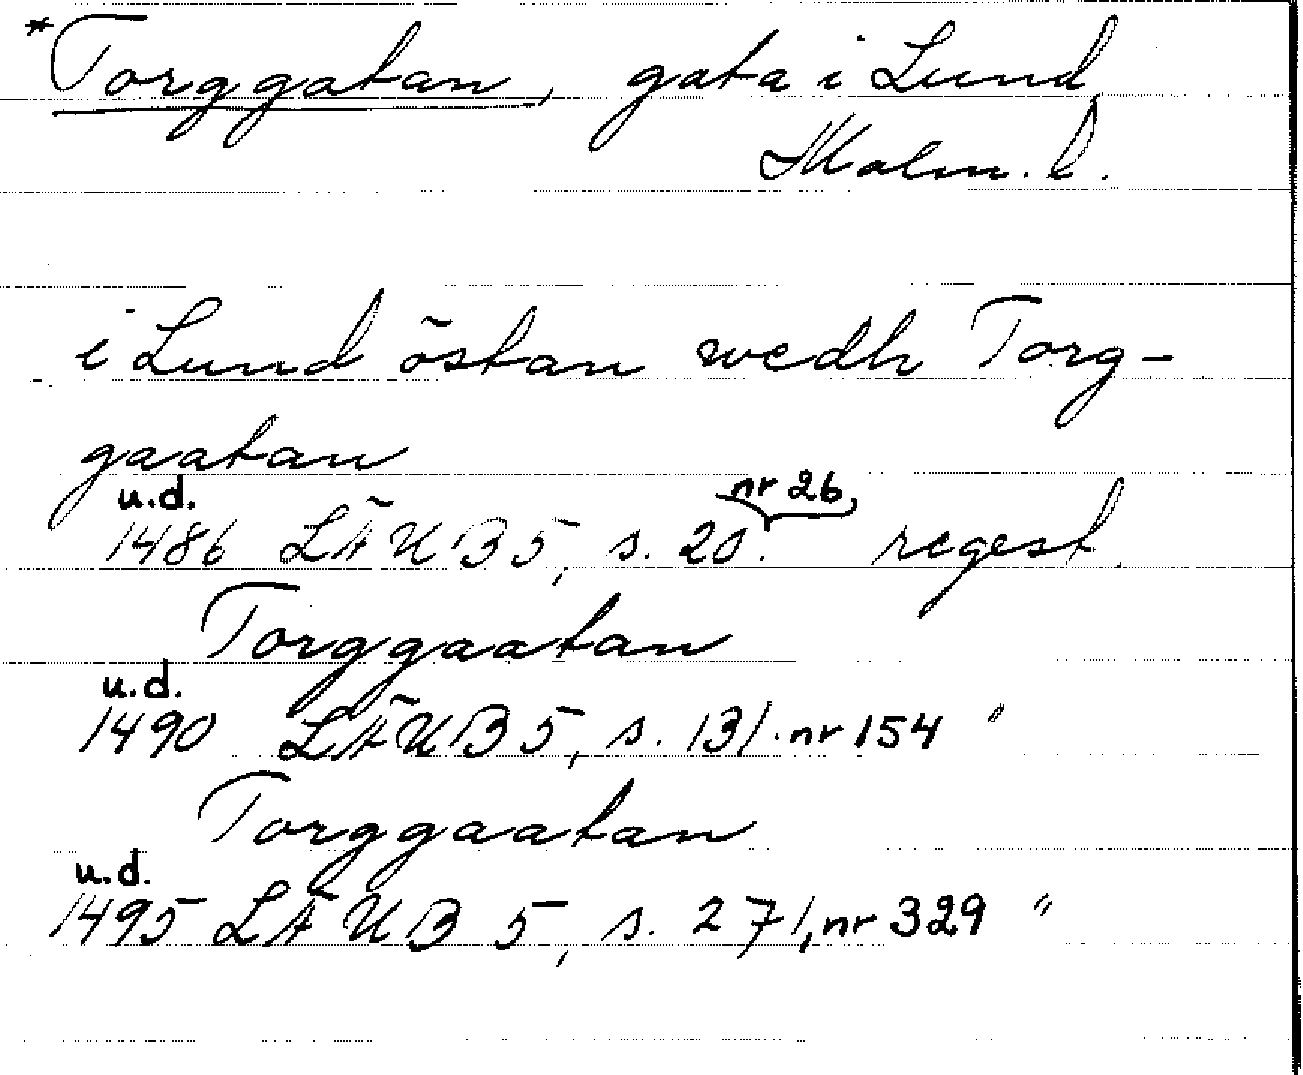 *Torggatan, gata i Lund
Malm. l.
i Lund östan wedh Torg-
gaatan
u.d. nr 26,
1486 LÄUB 5, s. 20. regest
Torggaatan
u.d.
1490 LÄUB 5, s. 131. nr 154 "
Torggaatan
u.d.
1495 LÄUB 5, s. 271, nr 329 "